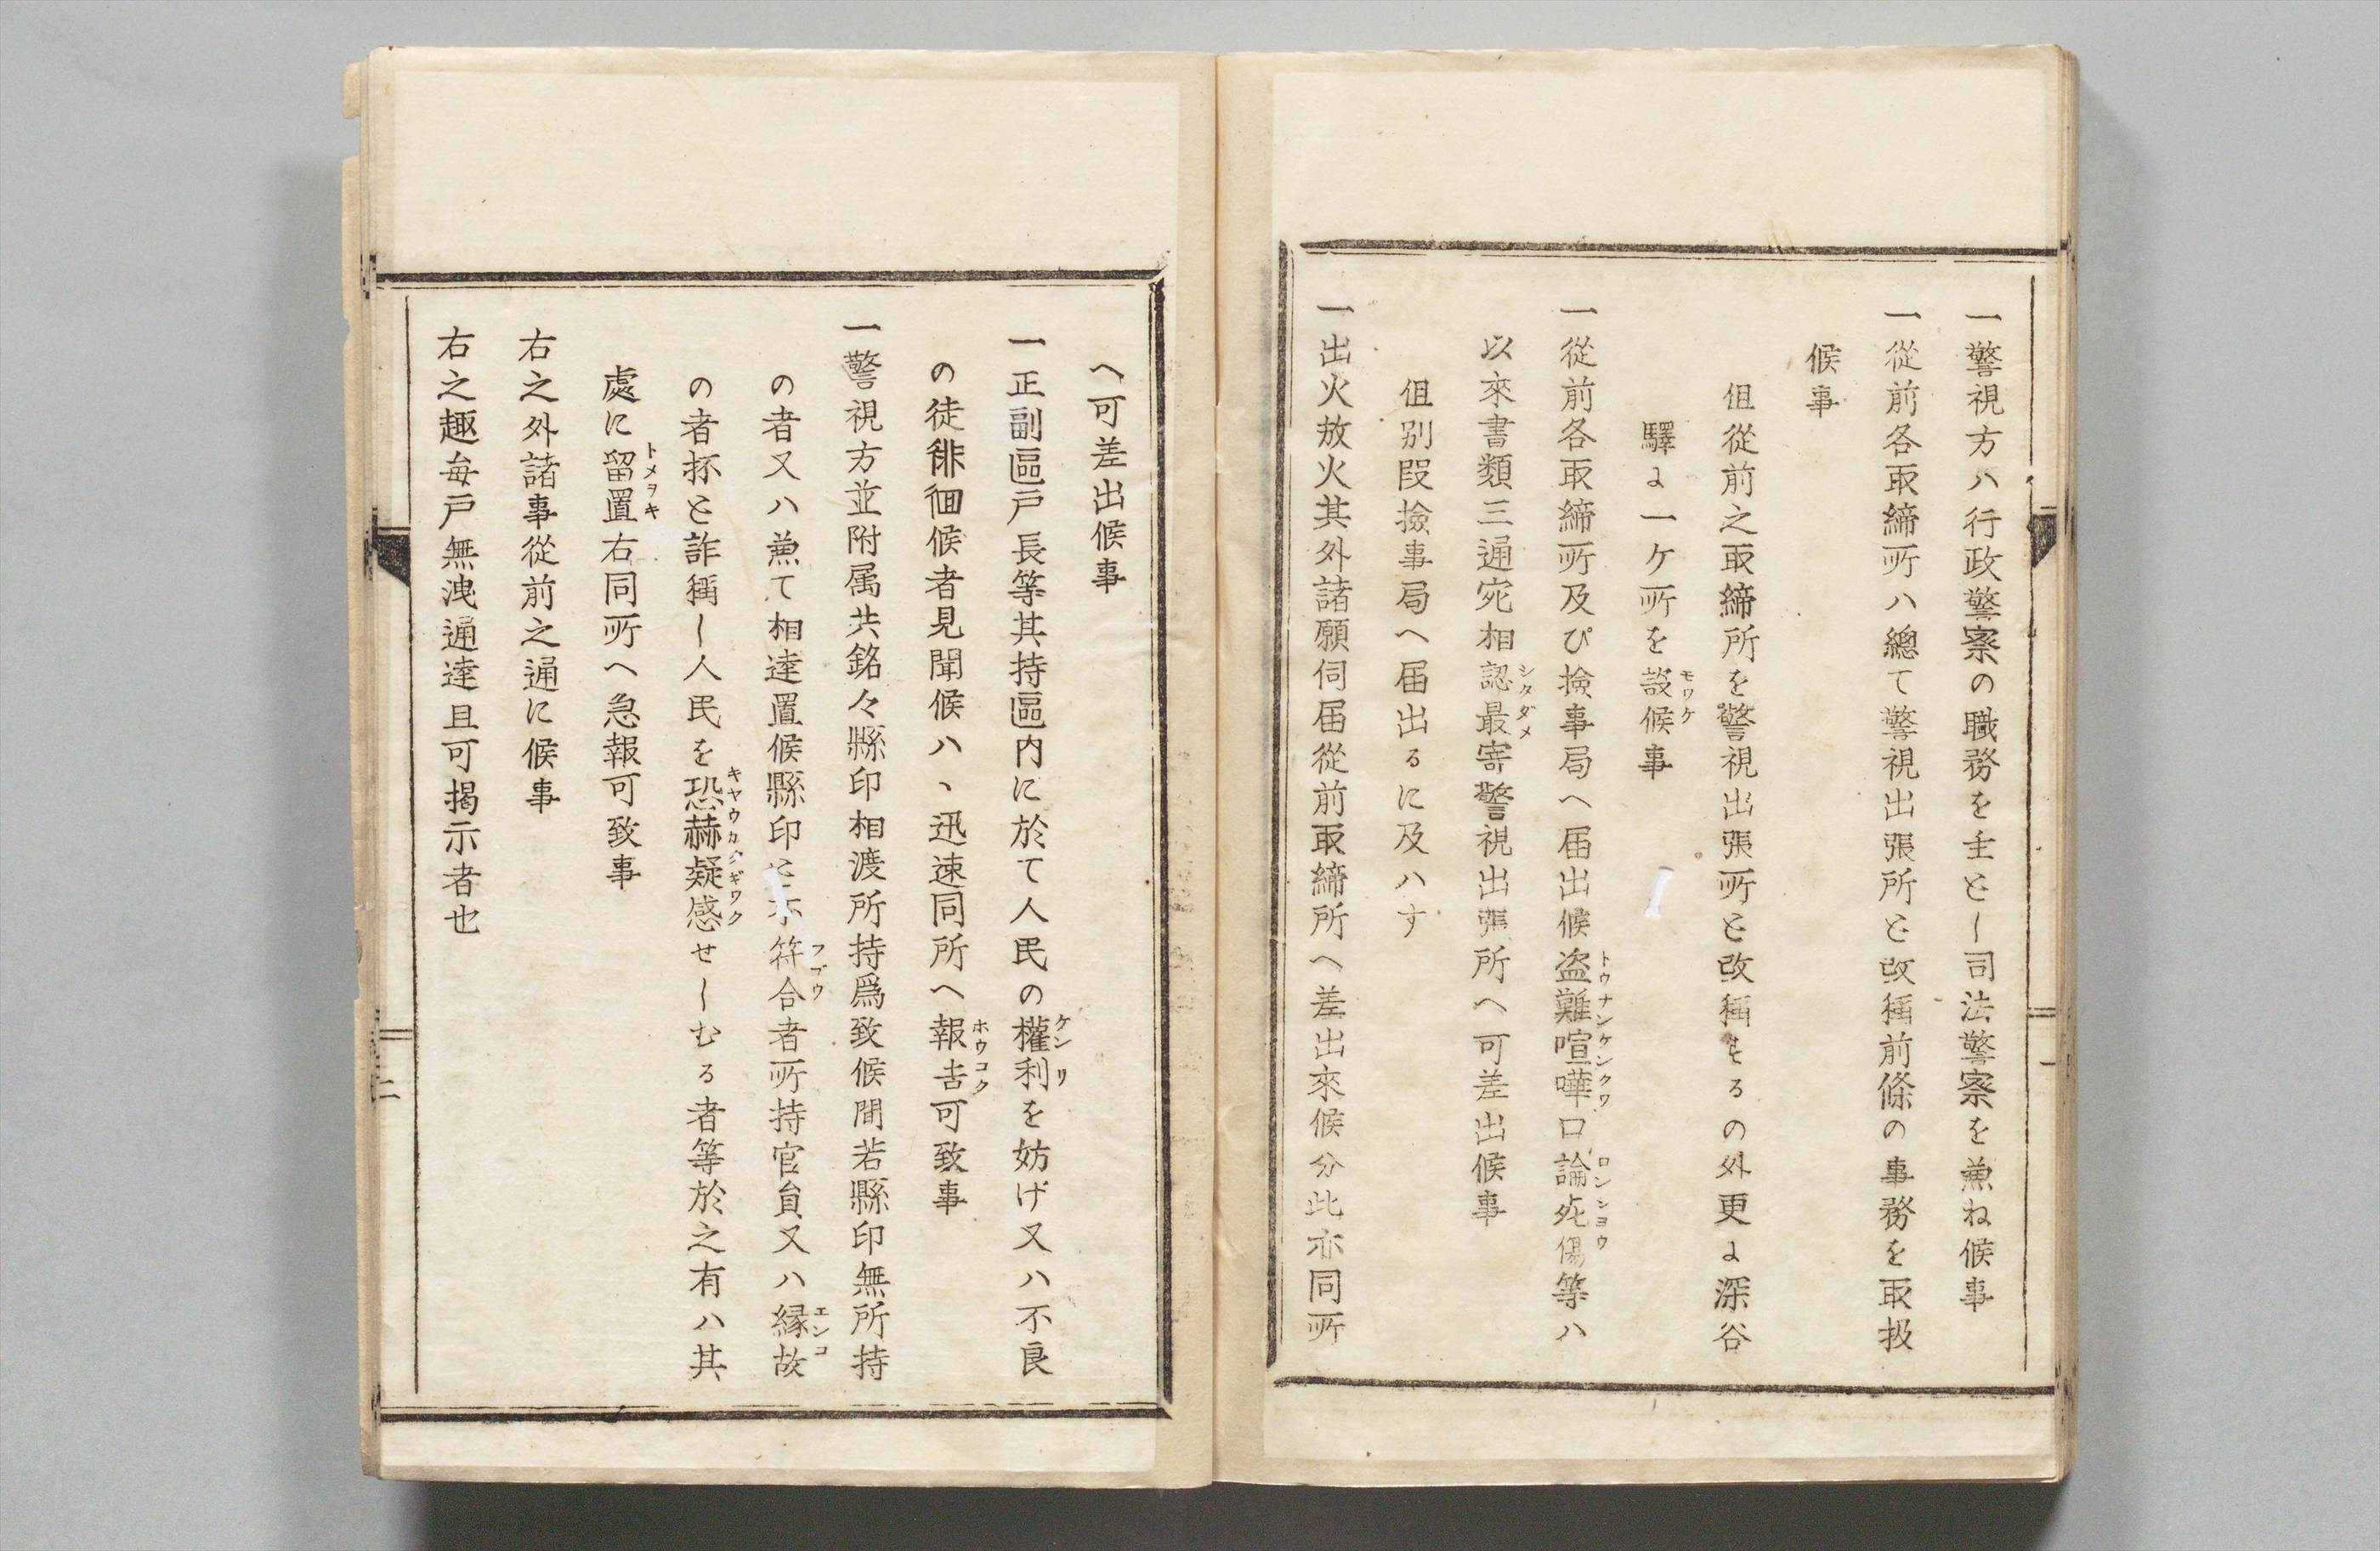 一警視方ハ行政警察の職務を主とし司法警察を兼ね候事
一從前各取締所ハ總て警視出張所と改稱前條の事務を取扱
候事
但從前之取締所を警視出張所と改稱するの外更に深谷
驛に一ケ所を設候事
モウケ
一從前各取締所及び撿事局へ届出候盗難喧嘩口論死傷等ハ
トウナンケンクワ
ロンシヨウ
以來書類三通宛相認最寄警視出張所へ可差出候事
シタダメ
但别段撿事局へ届出るに及ハす
一出火放火其外諸願伺届從前取締所へ差出來候分此亦同所
一
へ可差出候事
一正副區戸長等其持區内に於て人民の權利を妨げ又ハ不良
ケンリ
の徒徘徊候者見聞候ハヽ迅速同所へ報告可致事
ホウコク
一警視方並附属共銘々縣印相渡所持爲致候間若縣印無所持
の者又ハ兼て相達置候縣印と不符合者所持官員又ハ縁故
フゴウ
エンコ
の者抔と詐稱し人民を恐赫疑惑せしむる者等於之有ハ其
キヤウカクギワク
處に留置右同所へ急報可致事
トメヲキ
右之外諸事從前之通に候事
右之趣毎戸無洩通達且可揭示者也
二